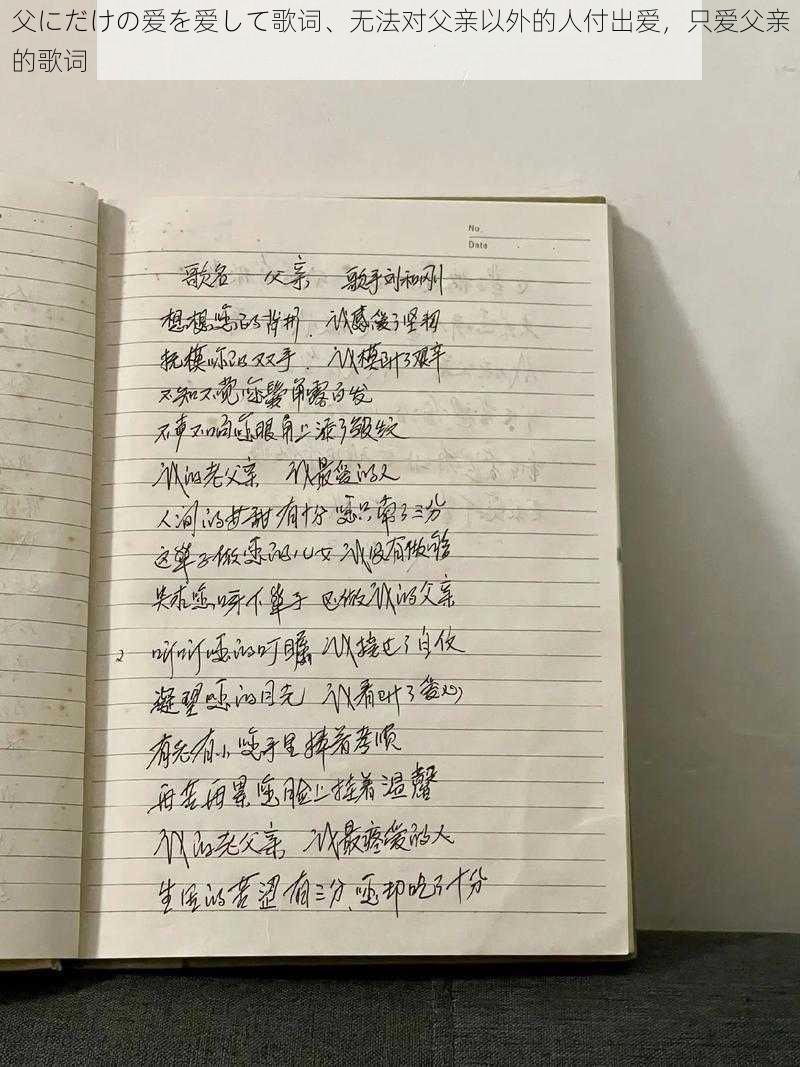 父にだけの爱を爱して歌词、无法对父亲以外的人付出爱，只爱父亲
的歌词
No.
Date
歌名 父亲 歌手刘和刚
想想您的背影、我感受了坚韧
抚摸你的双手、我摸到了艰辛
不知不觉您鬓角露白发
不声不响您眼角上添了皱纹
我的老父亲 我最爱的人
人间的甘甜有十分 您只尝了三分
这辈子做您的儿女 我没有做够
央求您呀下辈子 还做我的父亲
2 听听您的叮嘱 我接过了自信
凝望您的目光 我看到了爱心
有老有小 您手里捧着孝顺
再苦再累 您脸上挂着温馨
我的老父亲 我最疼爱的人
生活的苦涩有三分、您却吃了十分